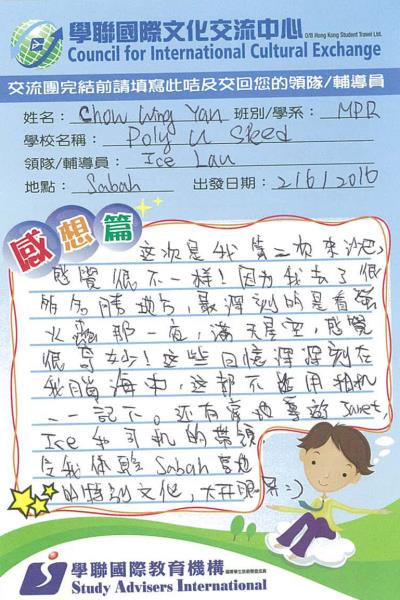 學聯國際文化交流中心 O/B Hong Kong Student Travel Ltd.
Council for International Cultural Exchange
交流團完結前請填寫此咭及交回您的領隊/輔導員
姓名： Chow Wing Yan 班別/學系： MPR
學校名稱： Poly U Speed
領隊/輔導員： Ice Lau
地點： Sabah 出發日期： 2/6/2016
感想篇
這次是我第二次來沙巴,
感覺很不一樣! 因為我去了很
多名勝地方, 最深刻的是看螢
火蟲那一夜, 滿天星空, 感覺
很奇妙! 這些回憶深深刻在
我腦海中, 這都不能用相机
一一記下。還有當地導遊 Janet,
Ice 和司机的帶領,
令我体驗 Sabah 當地
的特別文化, 大開眼界:)
學聯國際教育機構
Study Advisers International